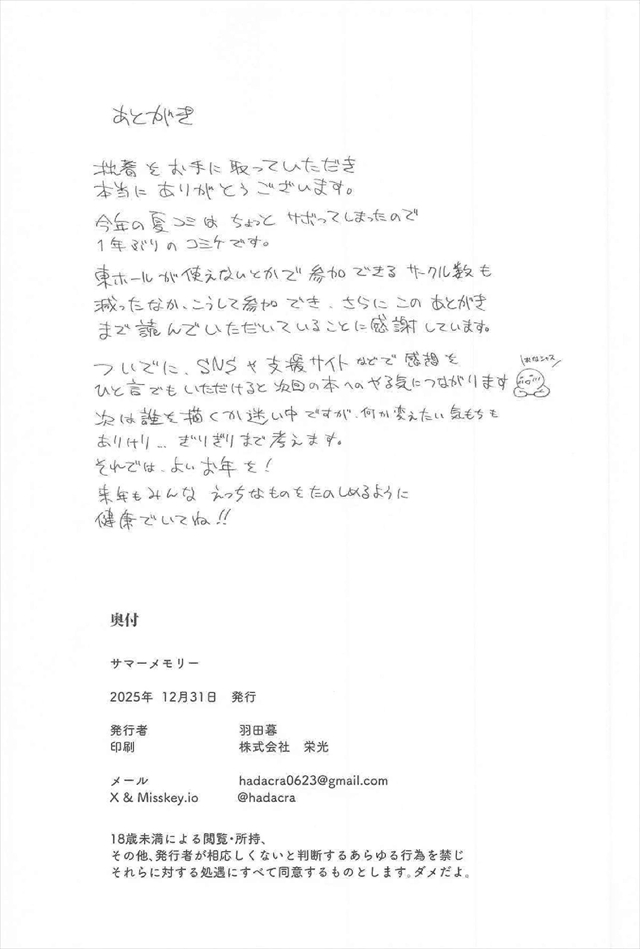 あとがき
拙著をお手に取っていただき
本当にありがとうございます。
今年の夏コミはちょっとサボってしまったので
1年ぶりのコミケです。
東ホールが使えないとかで参加できるサークル数も
減ったなか、こうして参加でき、さらにこのあとがき
まで読んでいただいていることに感謝しています。
ついでに、SNSや支援サイトなどで感想を
ひと言でもいただけると次回の本へのやる気につながります
次は誰を描くか迷い中ですが、何か変えたい気もちも
ありけり…ぎりぎりまで考えます。
それでは、よいお年を!
来年もみんな えっちなものをたのしめるように
健康でいてね!!
奥付
サマーメモリー
2025年 12月31日 発行
発行者 羽田暮
印刷 株式会社 栄光
メール hadacra0623@gmail.com
X & Misskey.io @hadacra
18歳未満による閲覧・所持、
その他、発行者が相応しくないと判断するあらゆる行為を禁じ
それらに対する処遇にすべて同意するものとします。ダメだよ。